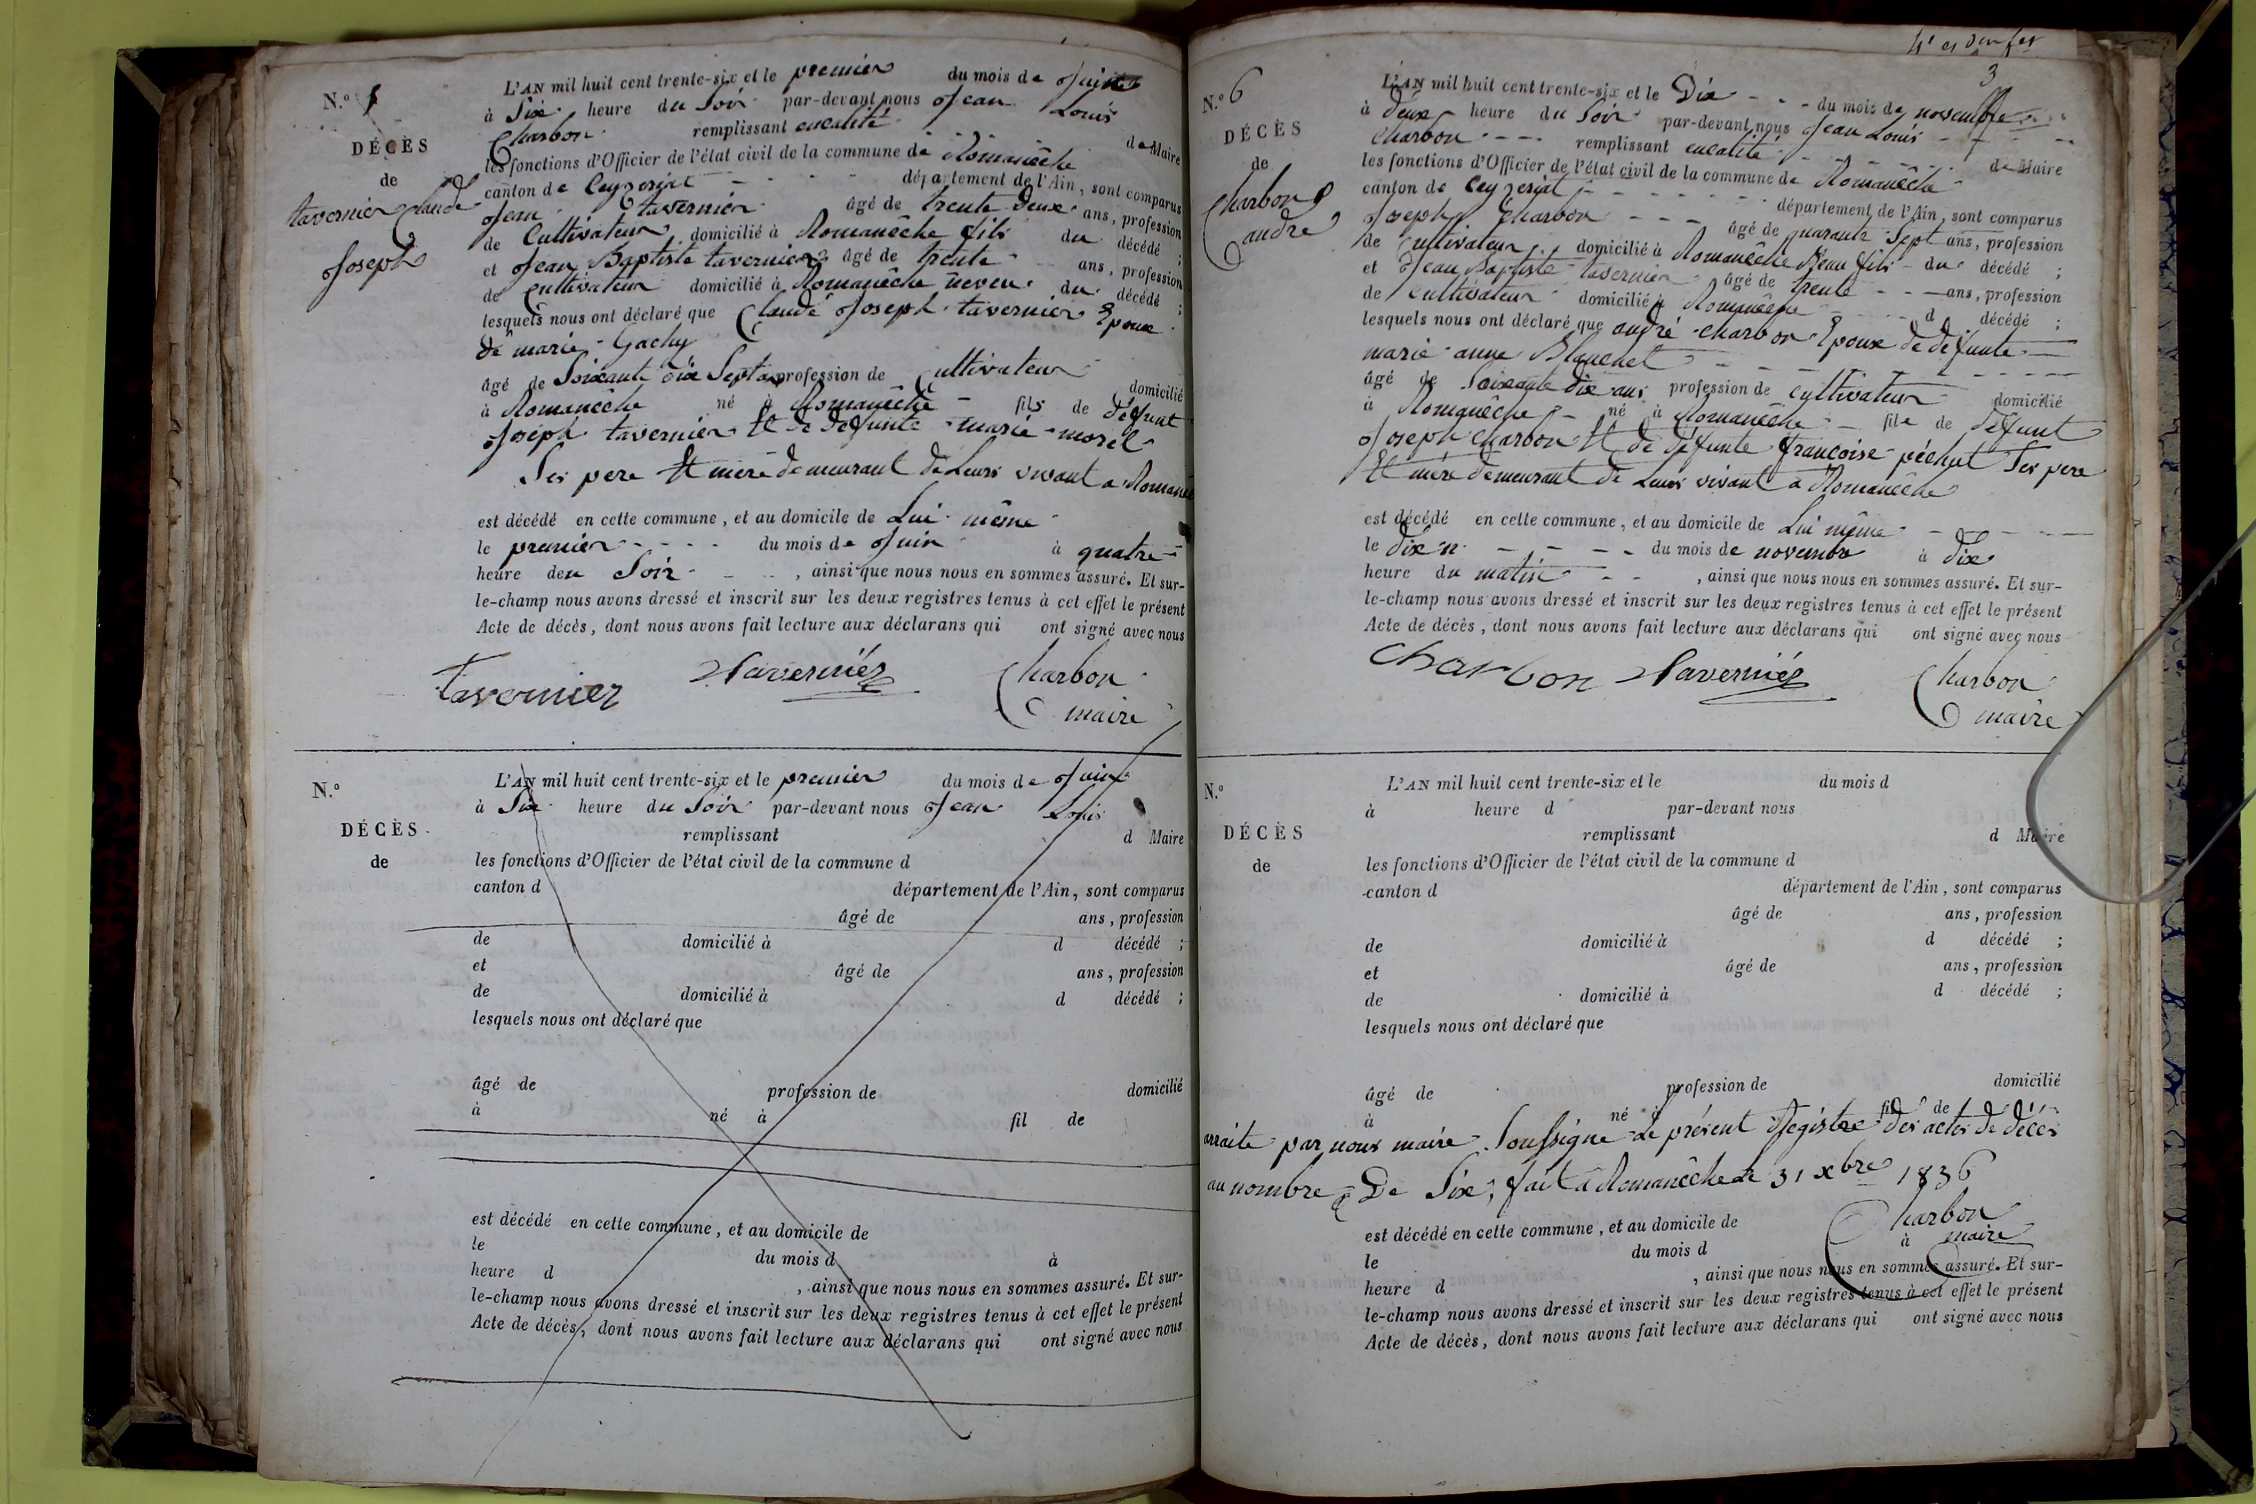 N.º 5
DÉCÈS
de
tavernier Claude
Joseph
L'AN mil huit cent trente-six et le premier du mois de Juin
à Six heure du Soir par-devant nous Jean Louis
Charbon remplissant enqualité de Maire
les fonctions d'Officier de l'état civil de la commune de Romanêche
canton de Ceyzeriat département de l'Ain, sont comparus
Jean tavernier âgé de trente deux ans, profession
de Cultivateur domicilié à Romanêche fils du décédé ;
et Jean Baptiste tavernier âgé de trente ans, profession
de Cultivateur domicilié à Romanêche neveu du décédé ;
lesquels nous ont déclaré que Claude Joseph tavernier Epoux
de marie Gachy
âgé de Soixante dix Sept ans profession de Cultivateur domicilié
à Romanêche né à Romanêche fils de défunt
Joseph tavernier Et de défunte marie morel
Ses pere Et mère demeurant de Leurs vivant a Romanê
est décédé en cette commune, et au domicile de Lui même
le premier du mois de Juin à quatre
heure deu Soir , ainsi que nous nous en sommes assuré. Et sur-
le-champ nous avons dressé et inscrit sur les deux registres tenus à cet effet le présent
Acte de décès, dont nous avons fait lecture aux déclarans qui ont signé avec nous
Tavernier Tavernier Charbon
maire
N.º
DÉCÈS
de
L'AN mil huit cent trente-six et le premier du mois de Juin
à Six heure du Soir par-devant nous Jean Louis
remplissant d Maire
les fonctions d'Officier de l'état civil de la commune d
canton d département de l'Ain, sont comparus
âgé de ans, profession
de domicilié à d décédé ;
et âgé de ans, profession
de domicilié à d décédé ;
lesquels nous ont déclaré que
âgé de profession de domicilié
à né à fil de
est décédé en cette commune, et au domicile de
le du mois d à
heure d , ainsi que nous nous en sommes assuré. Et sur-
le-champ nous avons dressé et inscrit sur les deux registres tenus à cet effet le présent
Acte de décès, dont nous avons fait lecture aux déclarans qui ont signé avec nous
3
N.º 6
DÉCÈS
de
Charbon
andré
L'AN mil huit cent trente-six et le Dix du mois de novembre
à deux heure du Soir par-devant nous Jean Louis
Charbon remplissant enqualité de Maire
les fonctions d'Officier de l'état civil de la commune de Romanêche
canton de Ceyzeriat département de l'Ain, sont comparus
Joseph Charbon âgé de quarante Sept ans, profession
de Cultivateur domicilié à Romanêche Beau fils du décédé ;
et Jean Baptiste tavernier âgé de trente ans, profession
de Cultivateur domicilié à Romanêche d décédé ;
lesquels nous ont déclaré que andré charbon Epoux de défunte
marie anne Blanchet
âgé de Soixante Dix ans profession de Cultivateur domicilié
à Romanêche né à Romanêche fils de défunt
Joseph Charbon Et de défunte françoise péchut Ses pere
Et mère demeurant de Leurs vivant a Romanêche
est décédé en cette commune, et au domicile de Lui même
le dix du mois de novembre à dix
heure du matin , ainsi que nous nous en sommes assuré. Et sur-
le-champ nous avons dressé et inscrit sur les deux registres tenus à cet effet le présent
Acte de décès, dont nous avons fait lecture aux déclarans qui ont signé avec nous
Charbon Tavernier Charbon
maire
N.º
DÉCÈS
de
L'AN mil huit cent trente-six et le du mois d
à heure d par-devant nous
remplissant d Maire
les fonctions d'Officier de l'état civil de la commune d
canton d département de l'Ain, sont comparus
âgé de ans, profession
de domicilié à d décédé ;
et âgé de ans, profession
de domicilié à d décédé ;
lesquels nous ont déclaré que
âgé de profession de domicilié
à né à fil de
arraité par nous maire Soussigné Le présent Régistre des actes de décès
au nombre De Six, fait à Romanêche le 31 xbre 1836
Charbon
maire
est décédé en cette commune, et au domicile de
le du mois d à
heure d , ainsi que nous nous en sommes assuré. Et sur-
le-champ nous avons dressé et inscrit sur les deux registres tenus à cet effet le présent
Acte de décès, dont nous avons fait lecture aux déclarans qui ont signé avec nous